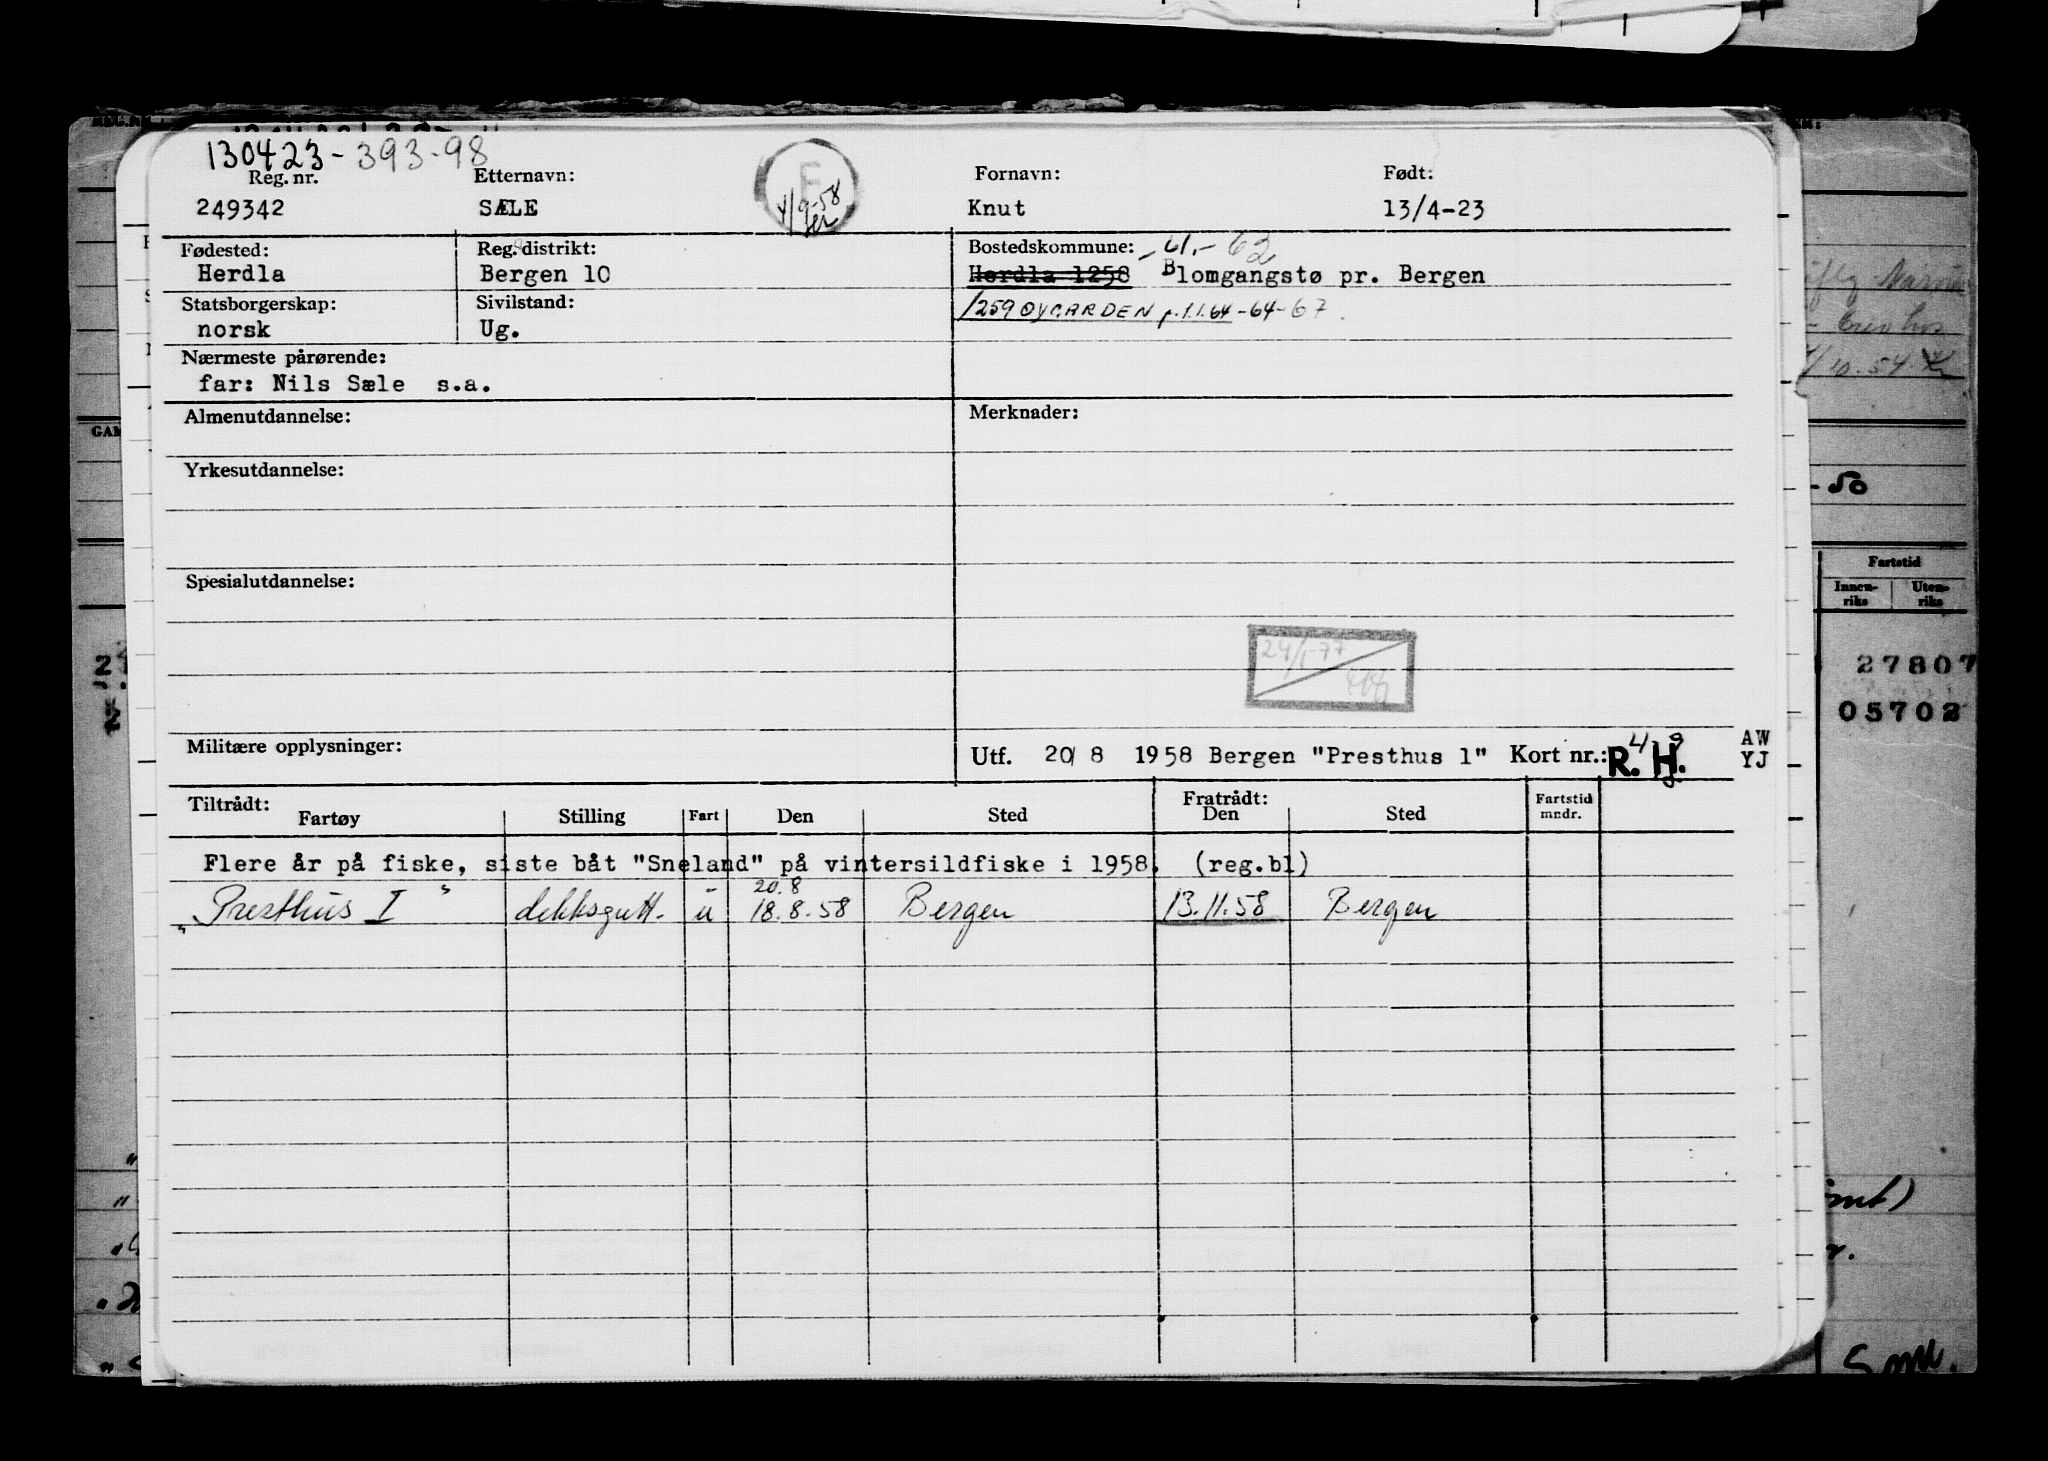 130423-393-98
Reg. nr. Etternavn: Fornavn: Født:
249342 SÆLE Knut 13/4-23
4/9-58
Fødested: Reg. distrikt: Bostedskommune: -61.-62
Herdla Bergen 10 Herdla 1258 Blomgangstø pr. Bergen
Statsborgerskap: Sivilstand: 1259 ØYGARDEN p.1.1.64-64-67.
norsk Ug.
Nærmeste pårørende:
far: Nils Sæle s.a.
Almenutdannelse: Merknader:
Yrkesutdannelse:
Spesialutdannelse:
24/1-77
Militære opplysninger: Utf. 20/8 1958 Bergen "Presthus 1" Kort nr.: R. H. AW
YJ
Tiltrådt: Fratrådt:
Fartøy Stilling Fart Den Sted Den Sted Fartstid mndr.
Flere år på fiske, siste båt "Sneland" på vintersildfiske i 1958. (reg.bl)
20.8
"Presthus I" dekksgutt. u 18.8.58 Bergen 13.11.58 Bergen
/10-54
-50
Fartstid
Innen-riks Uten-riks
27807
05702